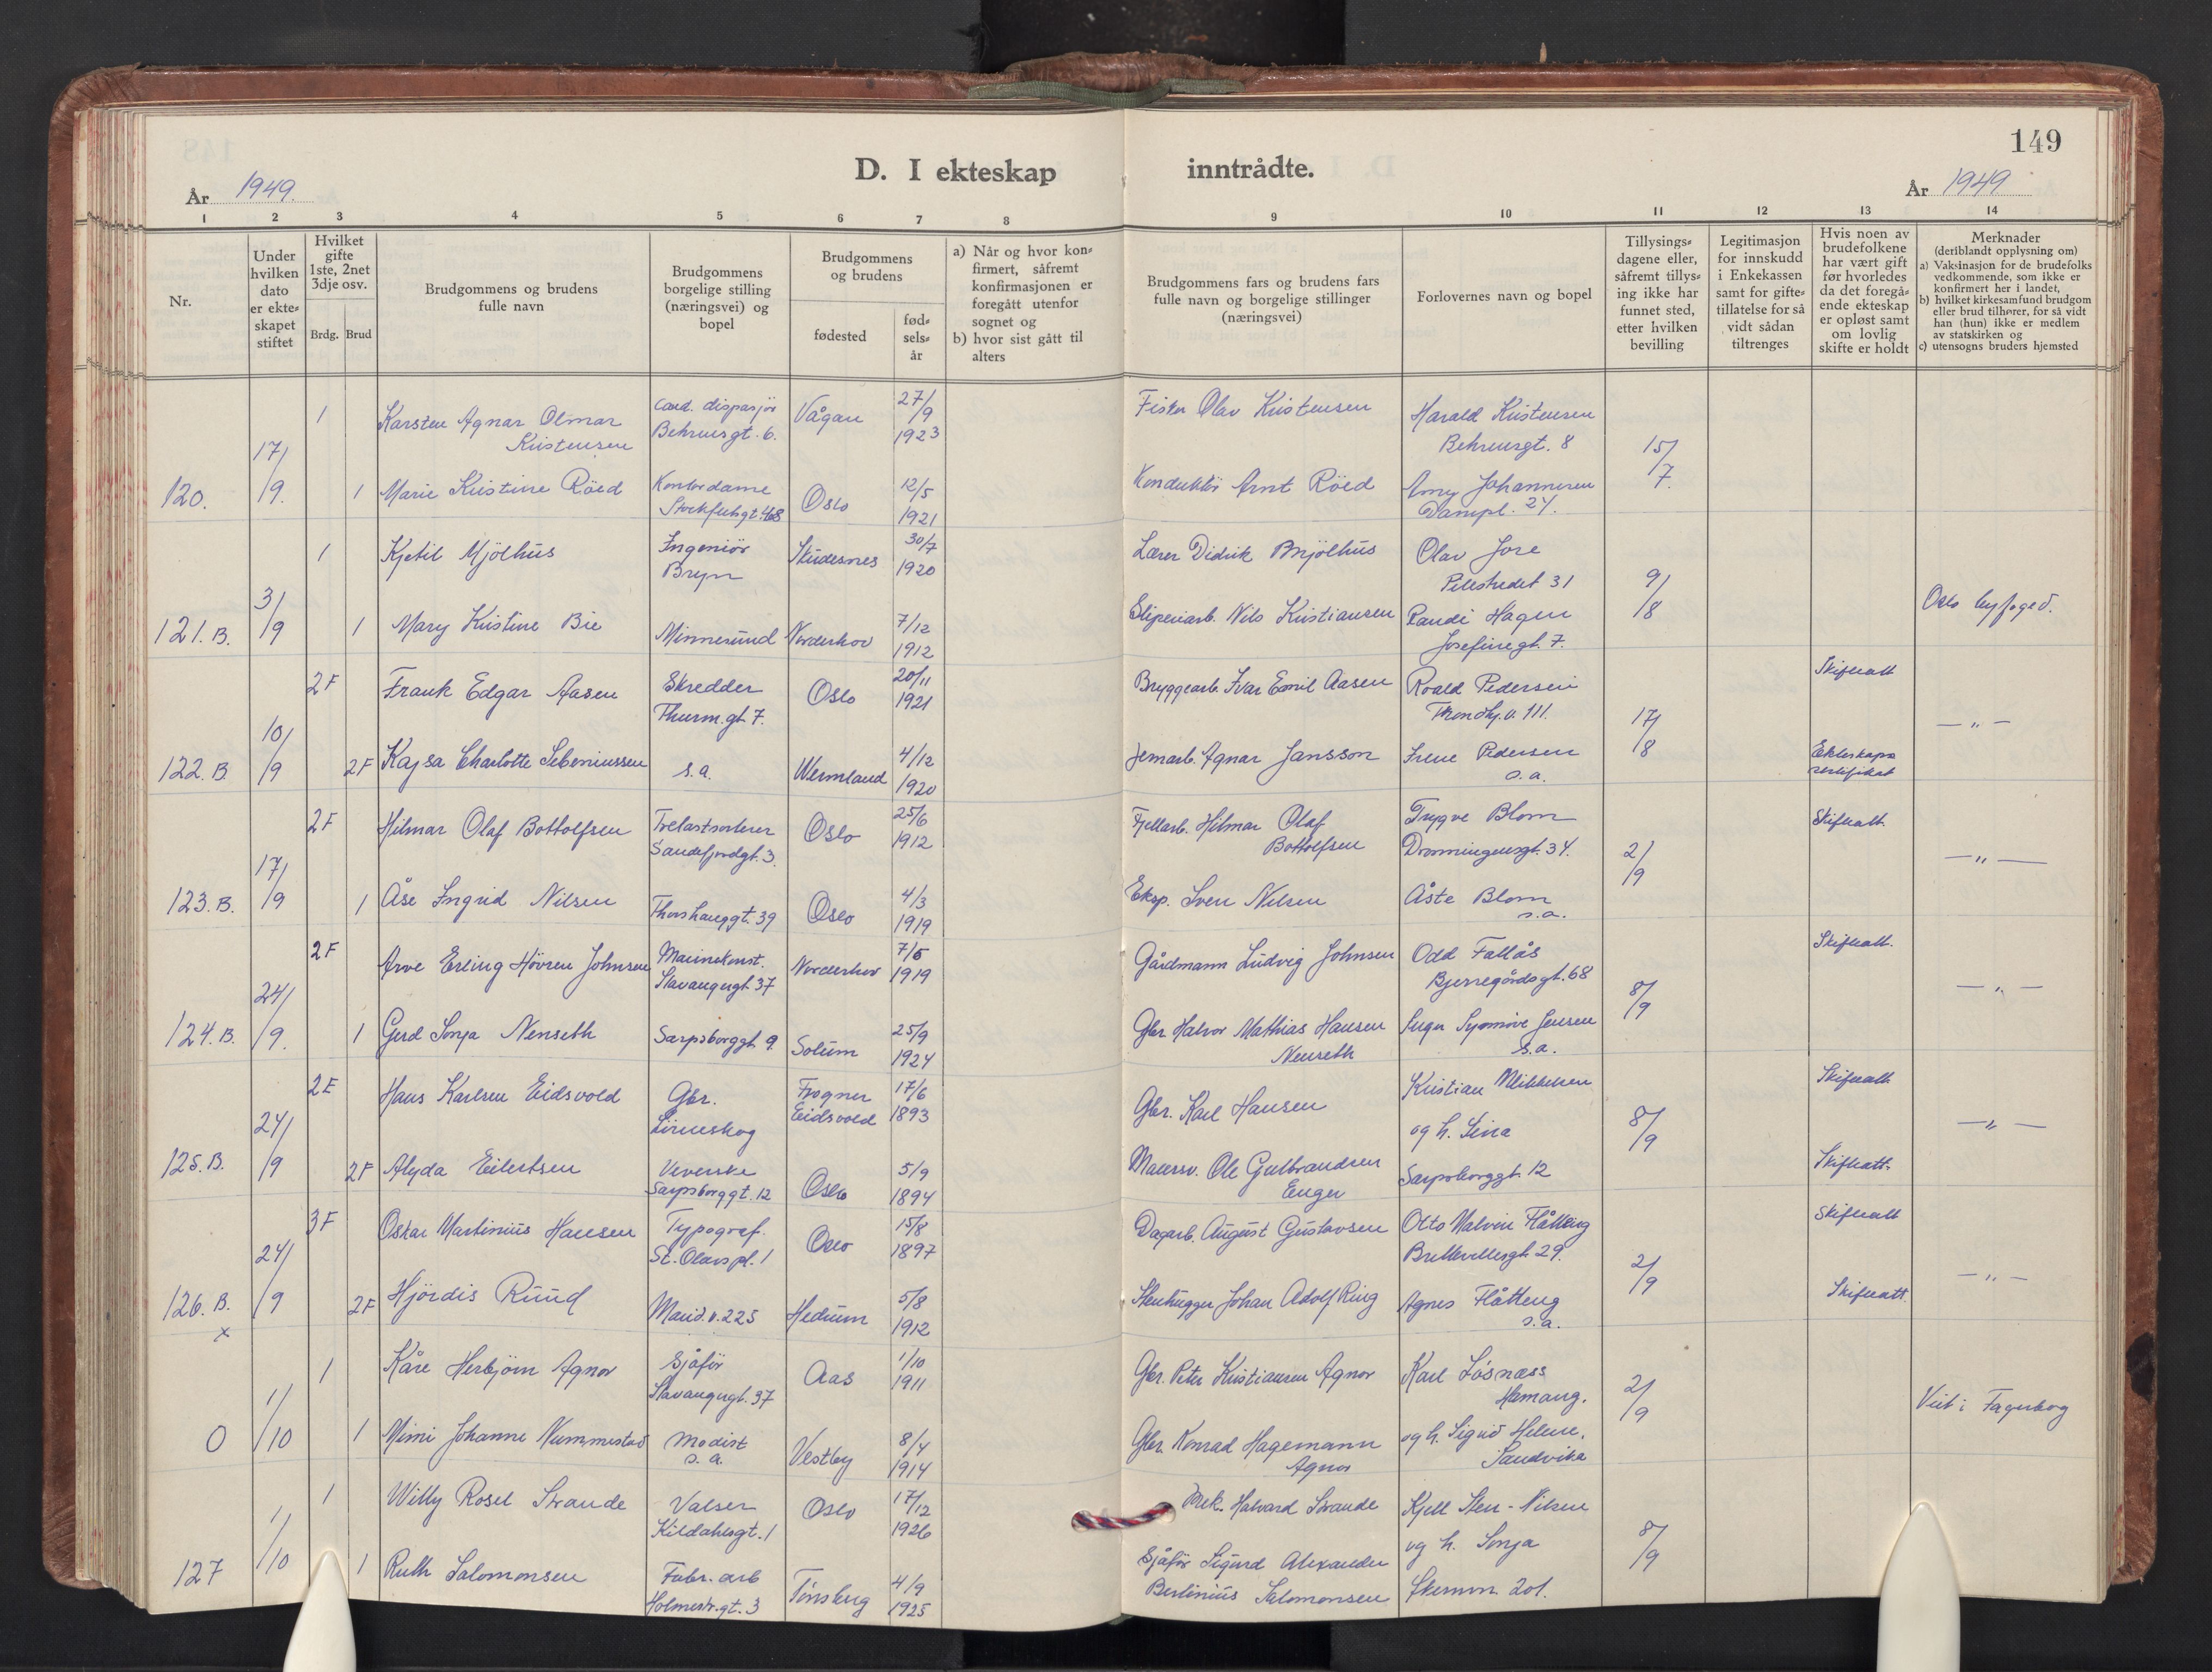 149
D. I ekteskap inntrådte.
År 1949.
År 1949
1 2 3 4 5 6 7 8 9 10 11 12 13 14
Nr.
Under hvilken dato er ekte= skapet stiftet
Hvilket gifte 1ste, 2net 3dje osv.
Brdg. Brud
Brudgommens og brudens fulle navn
Brudgommens borgelige stilling (næringsvei) og bopel
Brudgommens og brudens
fødested
fød= sels= år
a) Når og hvor kon= firmert, såfremt konfirmasjonen er foregått utenfor sognet og
b) hvor sist gått til alters
Brudgommens fars og brudens fars fulle navn og borgelige stillinger (næringsvei)
Forlovernes navn og bopel
Tillysings= dagene eller, såfremt tillys= ing ikke har funnet sted, etter hvilken bevilling
Legitimasjon for innskudd i Enkekassen samt for gifte= tillatelse for så vidt sådan tiltrenges
Hvis noen av brudefolkene har vært gift før hvorledes da det foregå= ende ekteskap er opløst samt om lovlig skifte er holdt
Merknader (deriblandt opplysning om)
a) Vaksinasjon for de brudefolks vedkommende, som ikke er konfirmert her i landet,
b) hvilket kirkesamfund brudgom eller brud tilhører, for så vidt han (hun) ikke er medlem av statskirken og
c) utensogns bruders hjemsted
120. 17/9.
1 Karsten Agnar Olmar Kristensen
Cand. dispasjør Behrensgt. 6.
Vågan 27/9 1923
Fisker Olav Kristensen
Harald Kristensen Behrensgt. 8
15/7.
1 Marie Kristine Röed
Kontordame
Oslo 12/5 1921
Konduktör Arnt Röed
Amy Johannesen Dampl. 24.
121. B. 3/9
1 Kjetil Mjölhus
Ingeniör Bryn
Skudesnes 30/7 1920
Lærer Didrik Mjölhus
Olav Jore Pilestredet 31
9/8
Oslo byfoged.
1 Mary Kristine Bie
Minnesund
Norderhov 7/12 1912
Sliperiarb. Nils Kristiansen
Randi Hagen Josefinegt. 7.
122. B 10/9
2F Frank Edgar Aasen
Skredder Thurm.gt. 7.
Oslo 20/11 1921
Bryggearb. Ivar Emil Aasen
Roald Pedersen Trondhj.v. 111.
17/8
Skifteatt
— " —
2F Kajsa Charlotte Sebeniussen
s.a.
Wermland 4/12 1920
Jernarb. Agnar Jansson
Irene Pedersen s.a.
Ekteskaps certifikat
123. B. 17/9
2F Hilmar Olaf Bottolfsen
Trelastsorterer Sandefjordgt. 3.
Oslo 25/6 1912
Fjellarb. Hilmar Olaf Bottolfsen
Trygve Blom Dronningensgt. 34.
2/9
Skifteatt.
— " —
1 Åse Ingrid Nilsen
Thorshauggt. 39
Oslo 4/3 1919
Eksp. Sven Nilsen
Åste Blom s.a.
124. B. 24/9.
2F Arve Erling Hövren Johnsen
Stavangergt. 37
Norderhov 7/5 1919
Gårdmann Ludvig Johnsen
Odd Fallås Bjerregårdsgt. 68
8/9
Skifteatt.
— " —
1 Gerd Sonja Nenseth
Sarpsborggt. 9.
Solum 25/9 1924
Gbr. Halvor Mathias Hansen Nenseth
Inger Synnöve Jensen s.a.
125. B. 24/9
2F Hans Karlsen Eidsvold
Gbr. Lörenskog
Frogner Eidsvold 17/6 1893
Gbr. Karl Hansen
Kristian Mikkelsen
8/9
Skifteatt.
— " —
2F Alyda Eilertsen
Veverske Sarpsborggt. 12
Oslo 5/9 1894
Murersv. Ole Gulbrandsen Enger
og h. Lina Sarpsborggt. 12
Skifteatt.
126. B. x 24/9
3F Oskar Martinius Hansen
Typograf. St. Olavs pl. 1
Oslo 15/8 1897
Dagarb. August Gustavsen
Otto Malvin Flåtteng Brettevillesgt. 29.
2/9
Skifteatt
— " —
2F Hjördis Ruud
Marid.v. 225
Hedrum 5/8 1912
Stenhugger Johan Adolf Ring
Agnes Flåtteng s.a.
Skifteatt.
0 1/10
1 Kåre Herbjörn Agnor
Sjåför Stavangergt. 37
Aas 1/10 1911
Gbr. Peter Kristiansen Agnor
Karl Lösnæss Hamang.
2/9
Viet i Fagerborg
1 Mimi Johanne Nummestad
Modist s.a.
Vestby 8/4 1914
Gbr. Konrad Hagemann Agnor
og h. Sigrid Helene, Sandvika
127 1/10
1 Willy Rosel Strande
Valser Kildahlsgt. 1
Oslo 17/12 1926
Mek. Halvard Strande
Kjell Sten-Nilsen
8/9
1 Ruth Salomonsen
Fabr. arb Holmestr.gt. 3
Tönsberg 4/9 1925
Sjåför Sigurd Alexander Berlinius Salomonsen
og h. Sonja